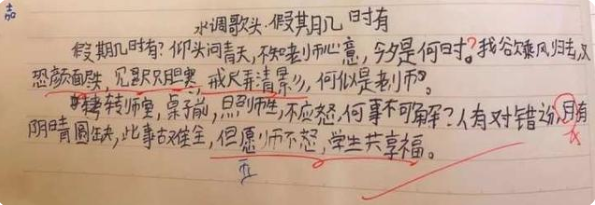 嘉
水调歌头·假期几时有
假期几时有?仰头问青天,不知老师心意,今夕是何时?我欲乘风归去,又
恐颜面跌,见尺胆寒,戒尺弄清影,何似是老师。
转师室,桌子前,照师生,不应怒,何事不可解?人有对错讼,月有
阴晴圆缺,此事古难全,但愿师不怒,学生共享福。